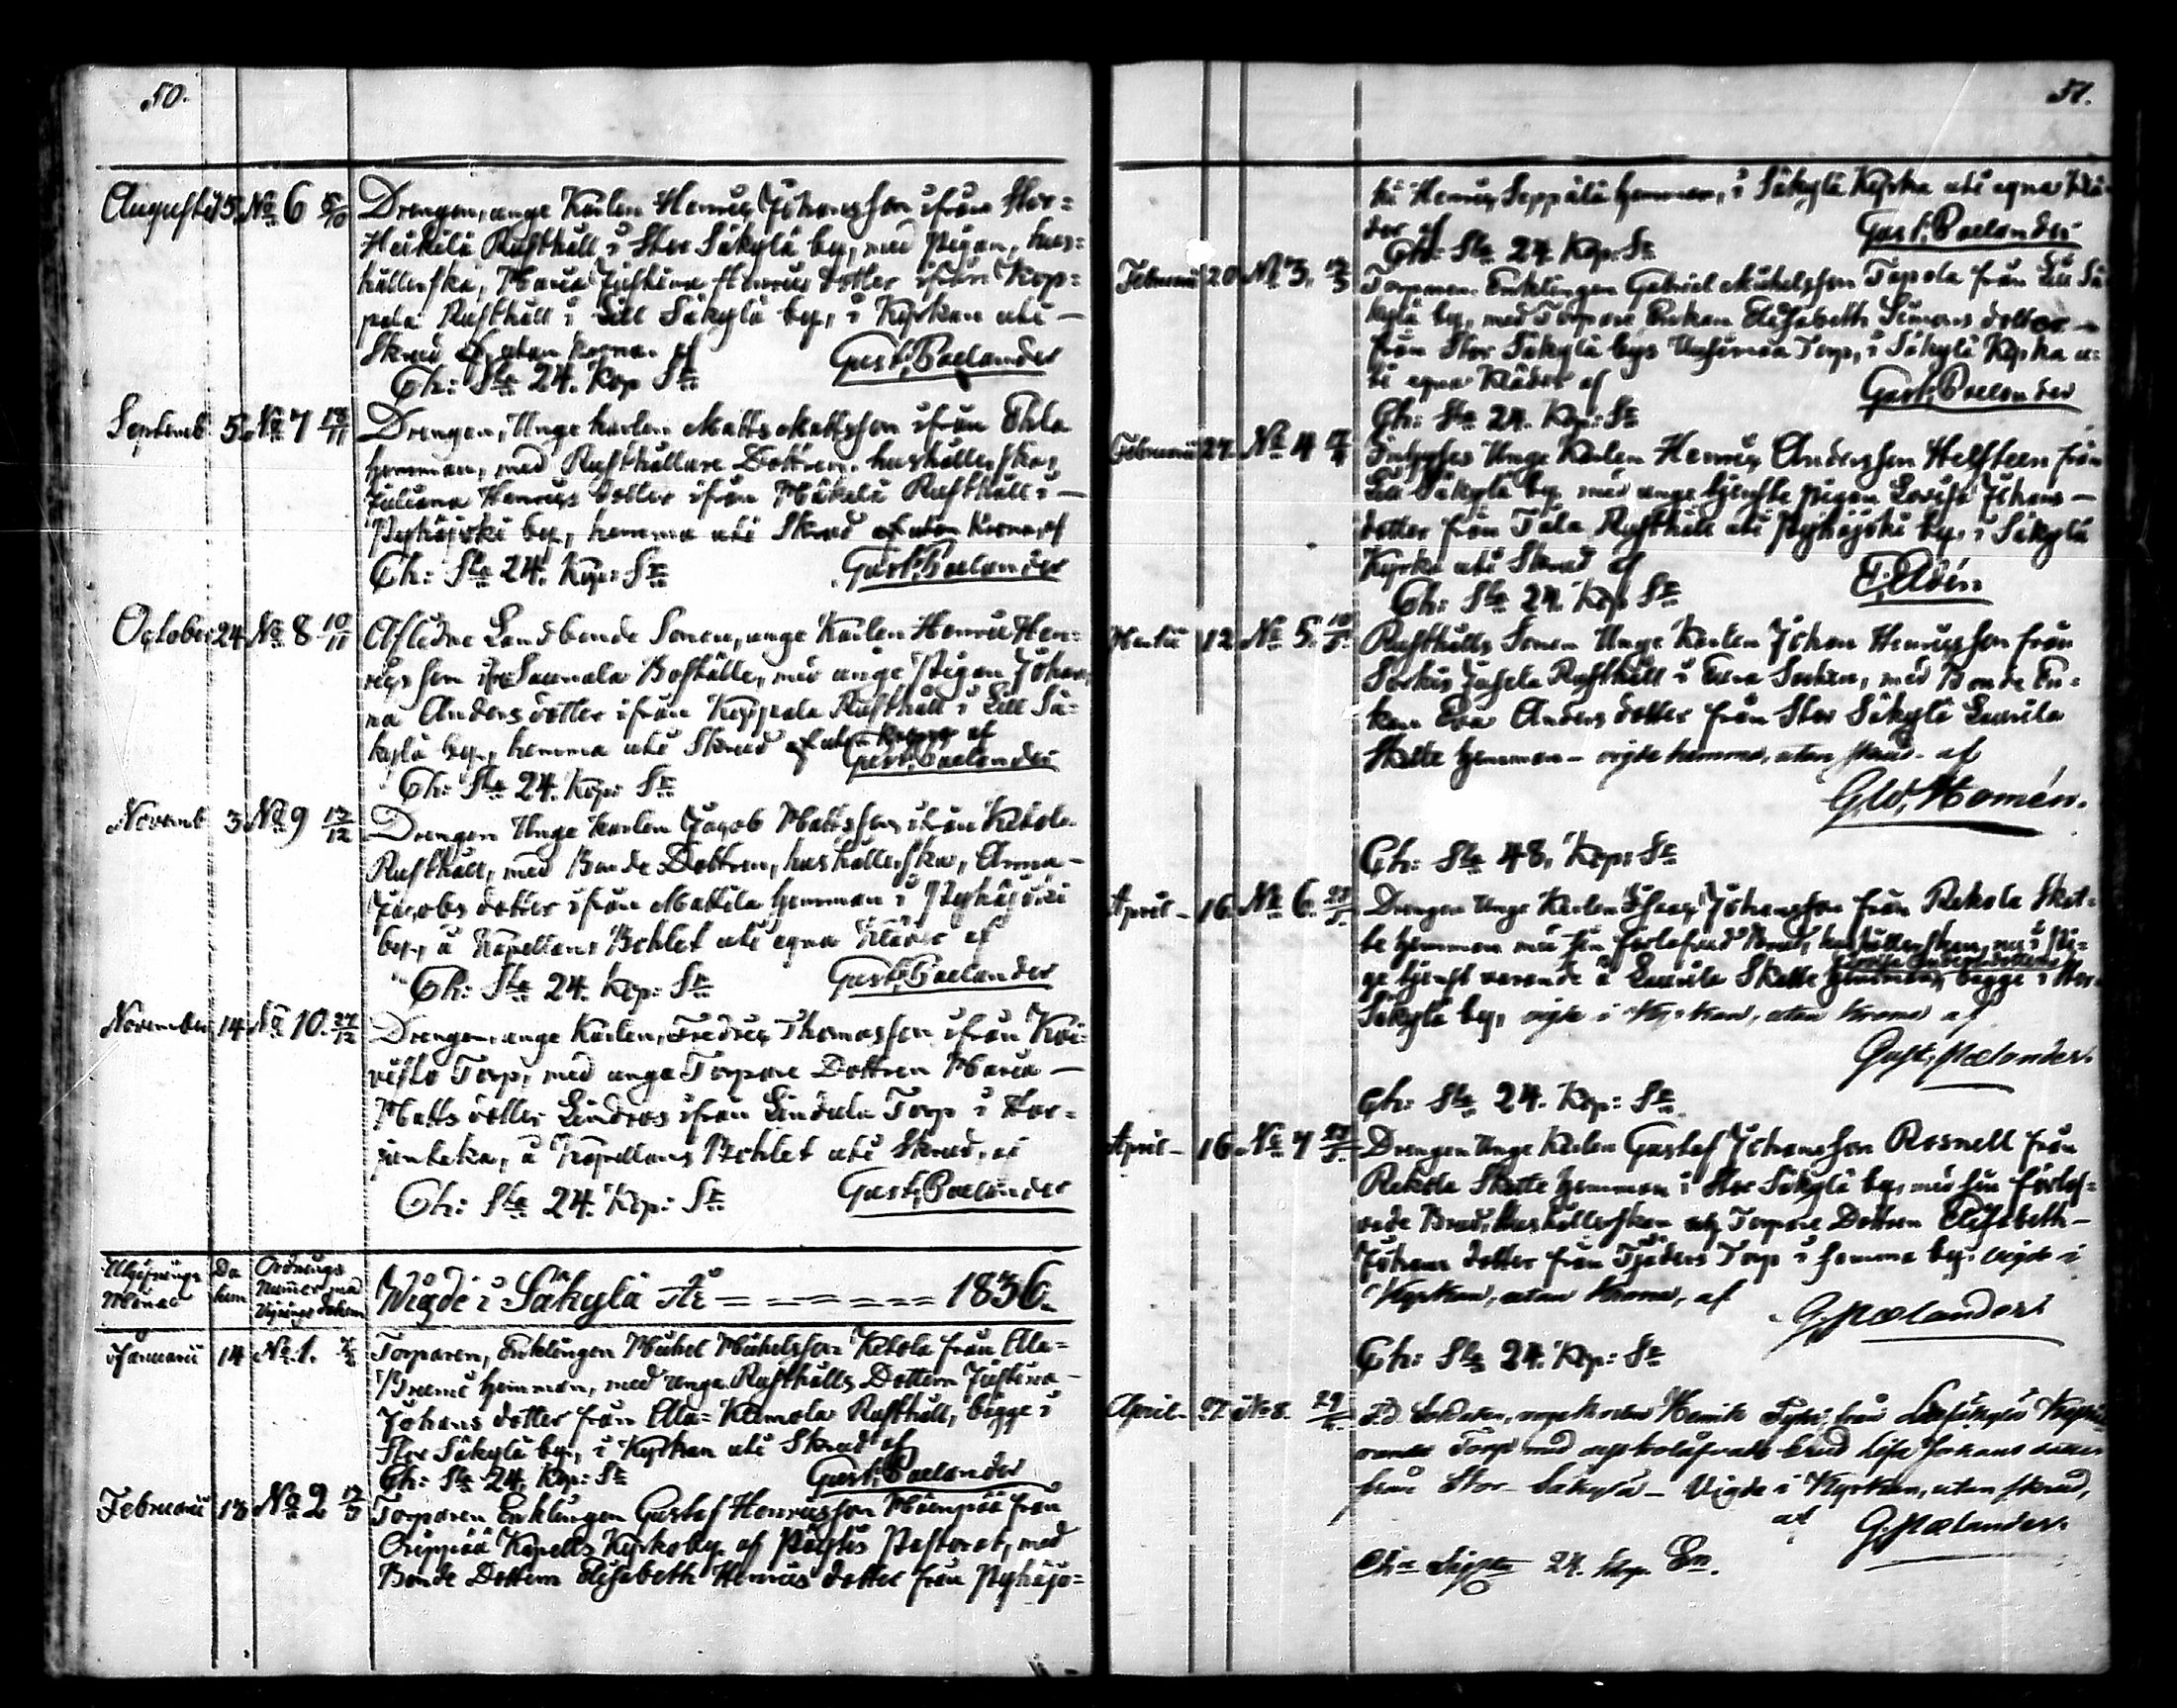 50.
Augusti 15. No 6 5/10 Drengen, unge Karlen Henric Johansson ifrån Stor=
Heikilä Rusthåll i Stor Säkylä by, med Pigan, hus=
hållerska, Maria Justina Henrics dotter ifrån Kop=
pala Rusthåll i Lill Säkylä by, i Kyrkan uti —
Skrud af utan krona. af Gust. Paelander
Ch: Sla 24. Kop Sr
Septemb 5. No 7 18/11 Drengen, Unge karlen Matts Mattsson ifrån
hemman, med Rusthållare Dottren, hushållerska,
Juliana Henrics dotter ifrån Mäkelä Rusthåll i —
Pyhäjoki by, hemma uti Skrud af utan Krona af
Ch: Sla 24. Kop: Sr Gust. Paelander
October 24. No 8 10/11 Aflidne Landbonde Sonen, unge Karlen Henric Hen=
ricsson ifrån Boställe, med unge Pigan Johan=
na Anders dotter ifrån Koppala Rusthåll i Lill Sä=
kylä by, hemma uti Skrud af utan krona af
Gust. Paelander
Ch: Sla 24. Kop: Sr
Novemb 3 No 9 13/12 Drengen Unge karlen Jacob Mattsson ifrån Ketola
Rusthåll, med Bonde Dottren, hushållerska, Anna —
Jacobs dotter ifrån Mattila hemman i Pyhäjoki
by, å Kapellans Bohlet uti egna kläder af
Ch: Sla 24. Kop: Sr Gust. Paelander
November 14 No 10. 27/12 Drengen, unge Karlen, Fredric Thomasson ifrån Koi=
visto Torp, med unga Torpare Dottren Maria —
Matts dotter Lindros ifrån Lindula Torp i
å Kapellans Bohlet uti Skrud, af
Ch: Sla 24. Kop: Sr Gust. Paelander
Da
tum
Ordnings
Numer
Wigde i Säkylä År — — — — — 1836.
Januarii 14 No 1. Torparen, Enklingen Michel Michelsson Ketola från Ala=
hemman, med unga Rusthålls Dottern Justina —
Johans dotter från Ala= Kimola Rusthåll, bägge i
Stor Säkylä by, i Kyrkan uti Skrud af
Ch: Sla 24. Kop: Sr Gust. Paelander
Februarii 13 No 2 Torparen Enklingen Gustaf Henricsson från
Orippää Kapells Kyrkoby af Pöytis Pastorat, med
Bonde Dottern Elisabeth Henrics dotter från Pyhäjo=
51.
ki Henric Seppälä hemman, i Säkylä Kyrka uti egna klä=
der af Gust. Paelander
Ch: Sla 24. Kop: Sr
Februarii 20 No 3. Torparen Enklingen Gabriel Michelsson Tapola från Lill Sä
kylä by, med Torpare Enkan Elisabeth Simons dotter —
från Stor Säkylä bys Torp, i Säkylä Kyrka u=
ti egna kläder af Gust. Paelander
Ch: Sla 24. Kop: Sr
Februarii 27. No 4 Inhyses Unge Karlen Henric Andersson Helsteen från
Lill Säkylä by, med unge tjenste pigan Lovisa Johans —
dotter från Tala Rusthåll uti Pyhäjoki by, i Säkylä
Kyrka uti Skrud af
Ch: Sla 24. Kop Sr
Martii 12. No 5. Rusthålls Sonen Unge Karlen Johan Henricsson från
Rusthåll i Eura Socken, med Bonde En=
kan Eva Anders dotter från Stor Säkylä Laurila
Skatte hemman — vigde hemma, utan skrud. af
G. W. Homén.
Ch: Sla 48. Kop: Sr
April — 16. No 6. Drengen Unge Karlen Isaac Johansson från Rekola Skat=
te hemman med sin förlofvade Brud, hushållerskan, nu i Pi=
ge tjenst varande å Laurila Skatte hemman, bägge i Stor
Säkylä by, vigde i Kyrkan, utan krona af
Gust. Pælander.
Ch: Sla 24. Kop: Sr
April — 16. No 7 Drengen Unge Karlen Gustaf Johansson Rosnell från
Rekola Skatte hemman i Stor Säkylä by, med sin förlof=
vade Brud, Hushållerskan och Torpare Dottren Elisabeth —
Johans dotter från Tjäders Torp i samma by. vigde i
Kyrkan, utan krona, af G. Pælander.
Ch: Sla 24. Kop: Sr
April — 27. No 8. F.d. Soldaten, unge karlen Henrik från
Torp med Brud Lisa Johans dotter
från Stor Säkylä — Vigde i Kyrkan, utan skrud,
af G. Pælander.
24. kop. Sr.